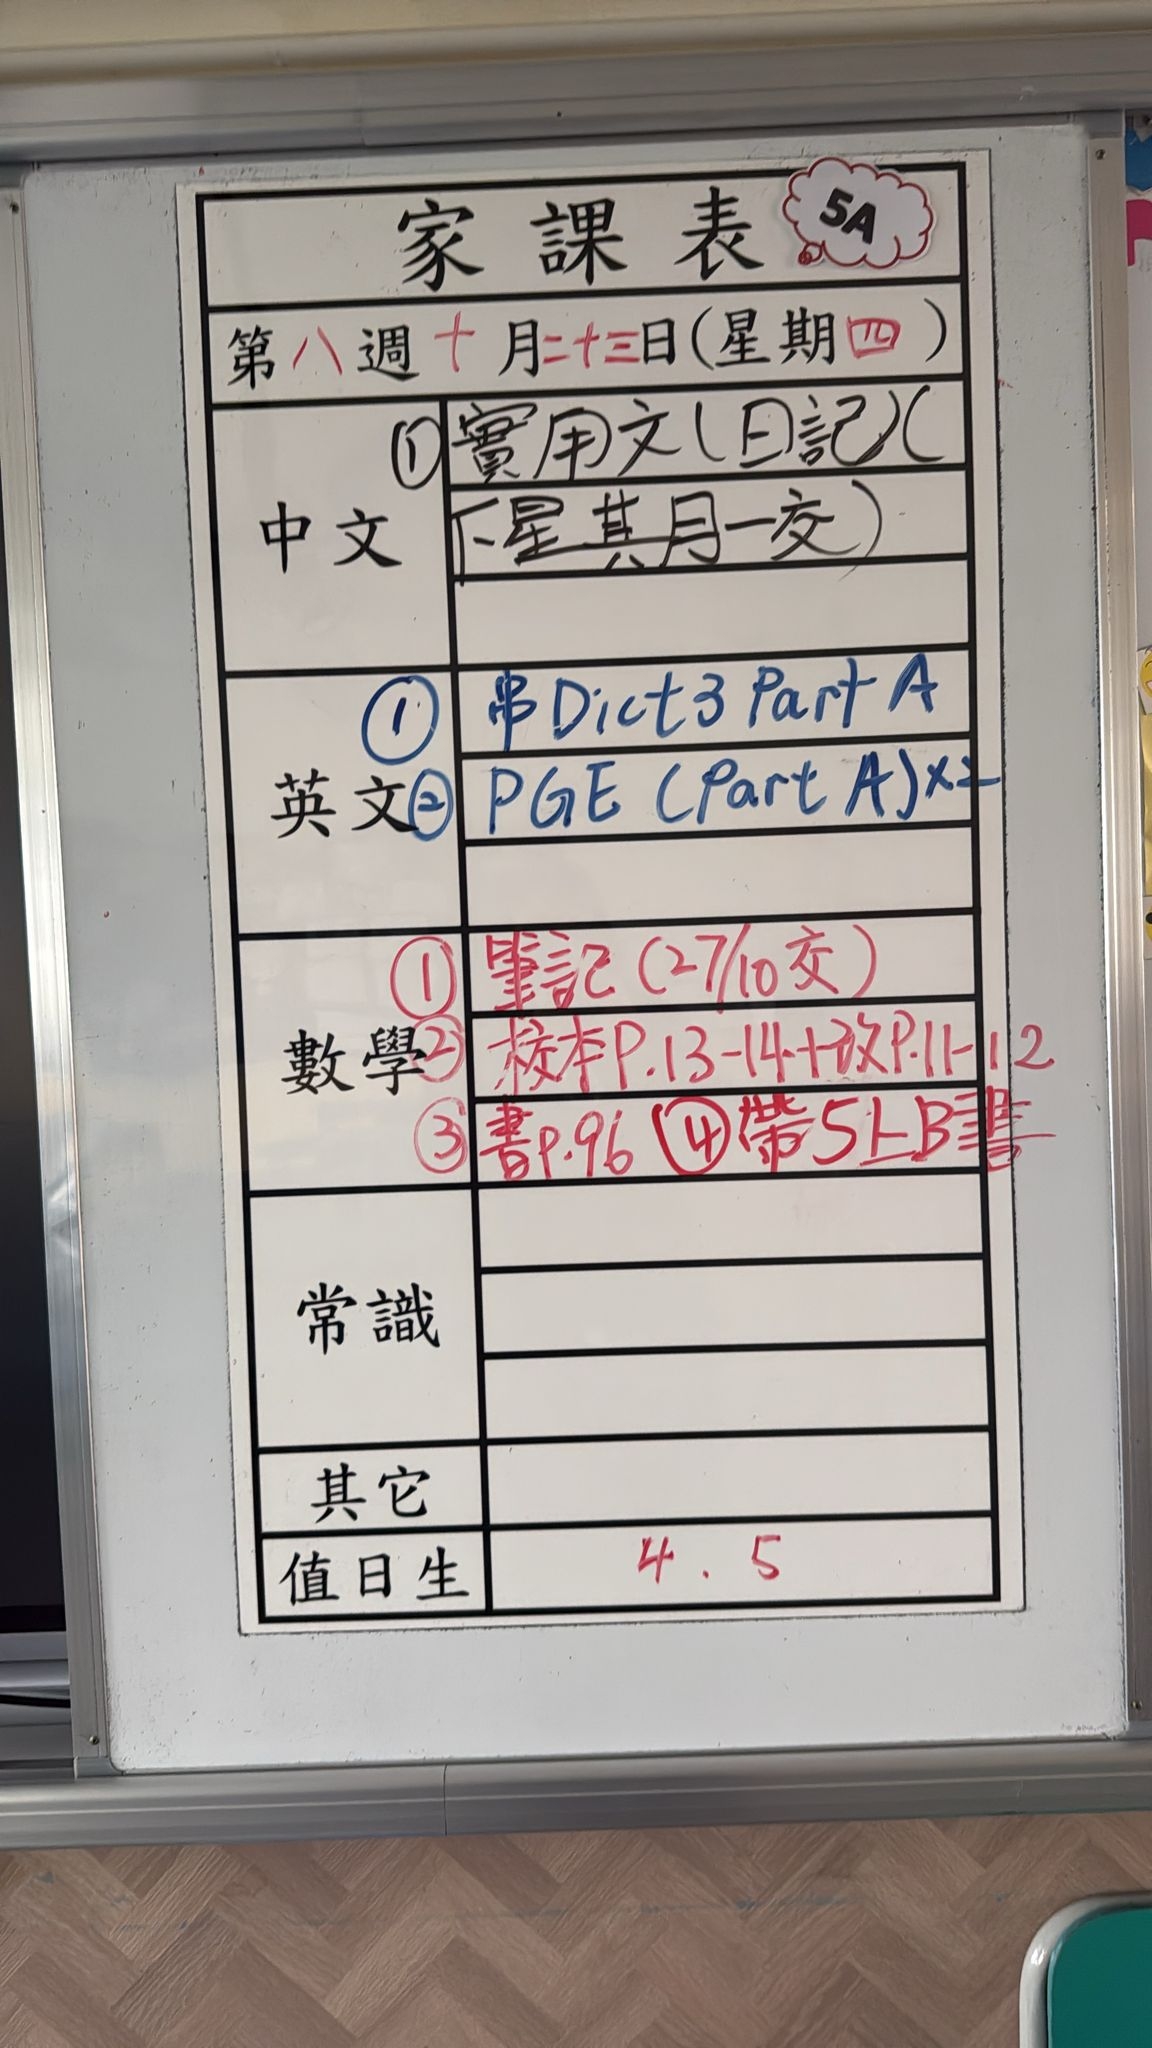 家課表 5A
第八週十月二十三日(星期四)
中文
①實用文(日記)(
下星期一交)
英文
①串Dict3 Part A
②PGE (Part A)×2
數學
①筆記(27/10交)
②校本P.13-14+改P.11-12
③書P.96 ④帶5上B書
常識
其它
值日生 4.5